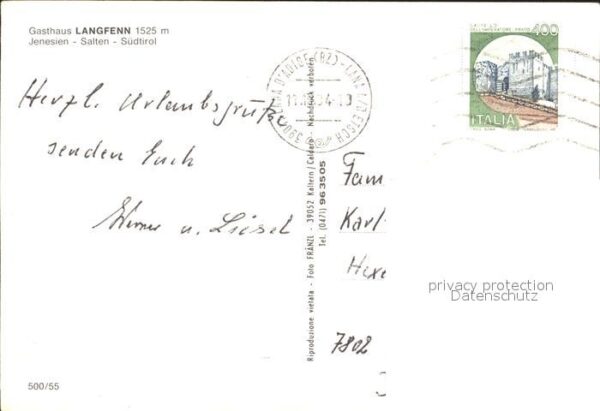 Gasthaus LANGFENN 1525 m
Jenesien - Salten - Südtirol
Herzl. Urlaubsgrüße
senden Euch
Werner u. Liesel
500/55
Riproduzione vietata - Foto FRÄNZL - 39052 Kaltern/Caldaro - Nachdruck verboten
Tel. (0471) 963505
400
ITALIA
Fam
Karl
Hexe
7802
privacy protection
Datenschutz